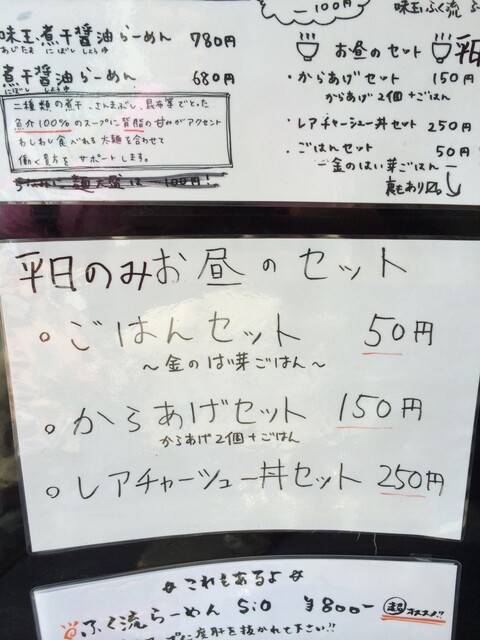 味玉煮干醤油らーめん 780円
あじたま にぼし しょうゆ
煮干醤油らーめん 680円
にぼし しょうゆ
二種類の煮干、さんまぶし、昆布等でとった
魚介100%のスープに背脂の甘みがアクセント
わしわし食べれる太麺を合わせて
働く貴方をサポートします。
100円
味玉ふく流
お昼のセット
平日
・からあげセット 150円
からあげ2個+ごはん
・レアチャーシュー丼セット 250円
・ごはんセット 50円
金のはい芽ごはん
裏もあり〼。
平日のみお昼のセット
。ごはんセット 50円
〜金のはい芽ごはん〜
。からあげセット 150円
からあげ2個+ごはん
。レアチャーシュー丼セット 250円
これもあるよ
ふく流らーめん SiO ¥800-
超オススメ!!
度肝を抜かれて下さい!!